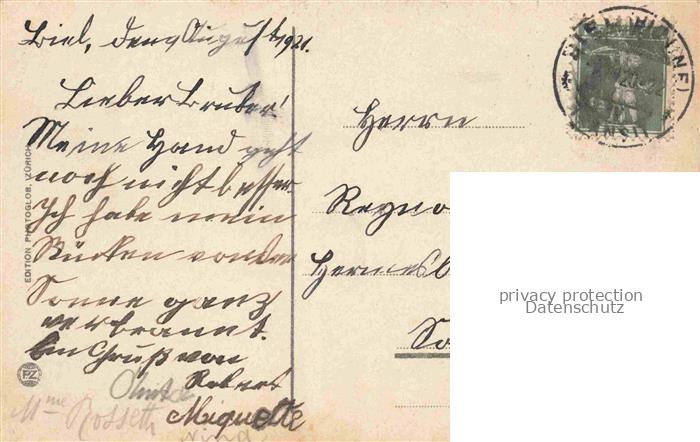 Biel, den 9 August 1921.
Lieber Bruder!
Meine Hand geht
noch nicht besser.
Ich habe mein
Rücken von der
Sonne ganz
verbrannt.
Ein Gruß von
Robert
Miquette
Mme Rossetti
Herrn
EDITION PHOTOGLOB, ZÜRICH
PZ
privacy protection
Datenschutz